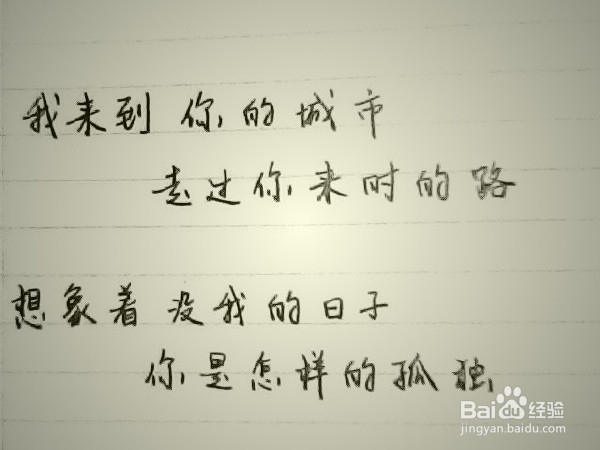 我来到你的城市
走过你来时的路
想象着没我的日子
你是怎样的孤独
Bai du 经验
jingyan.baidu.com